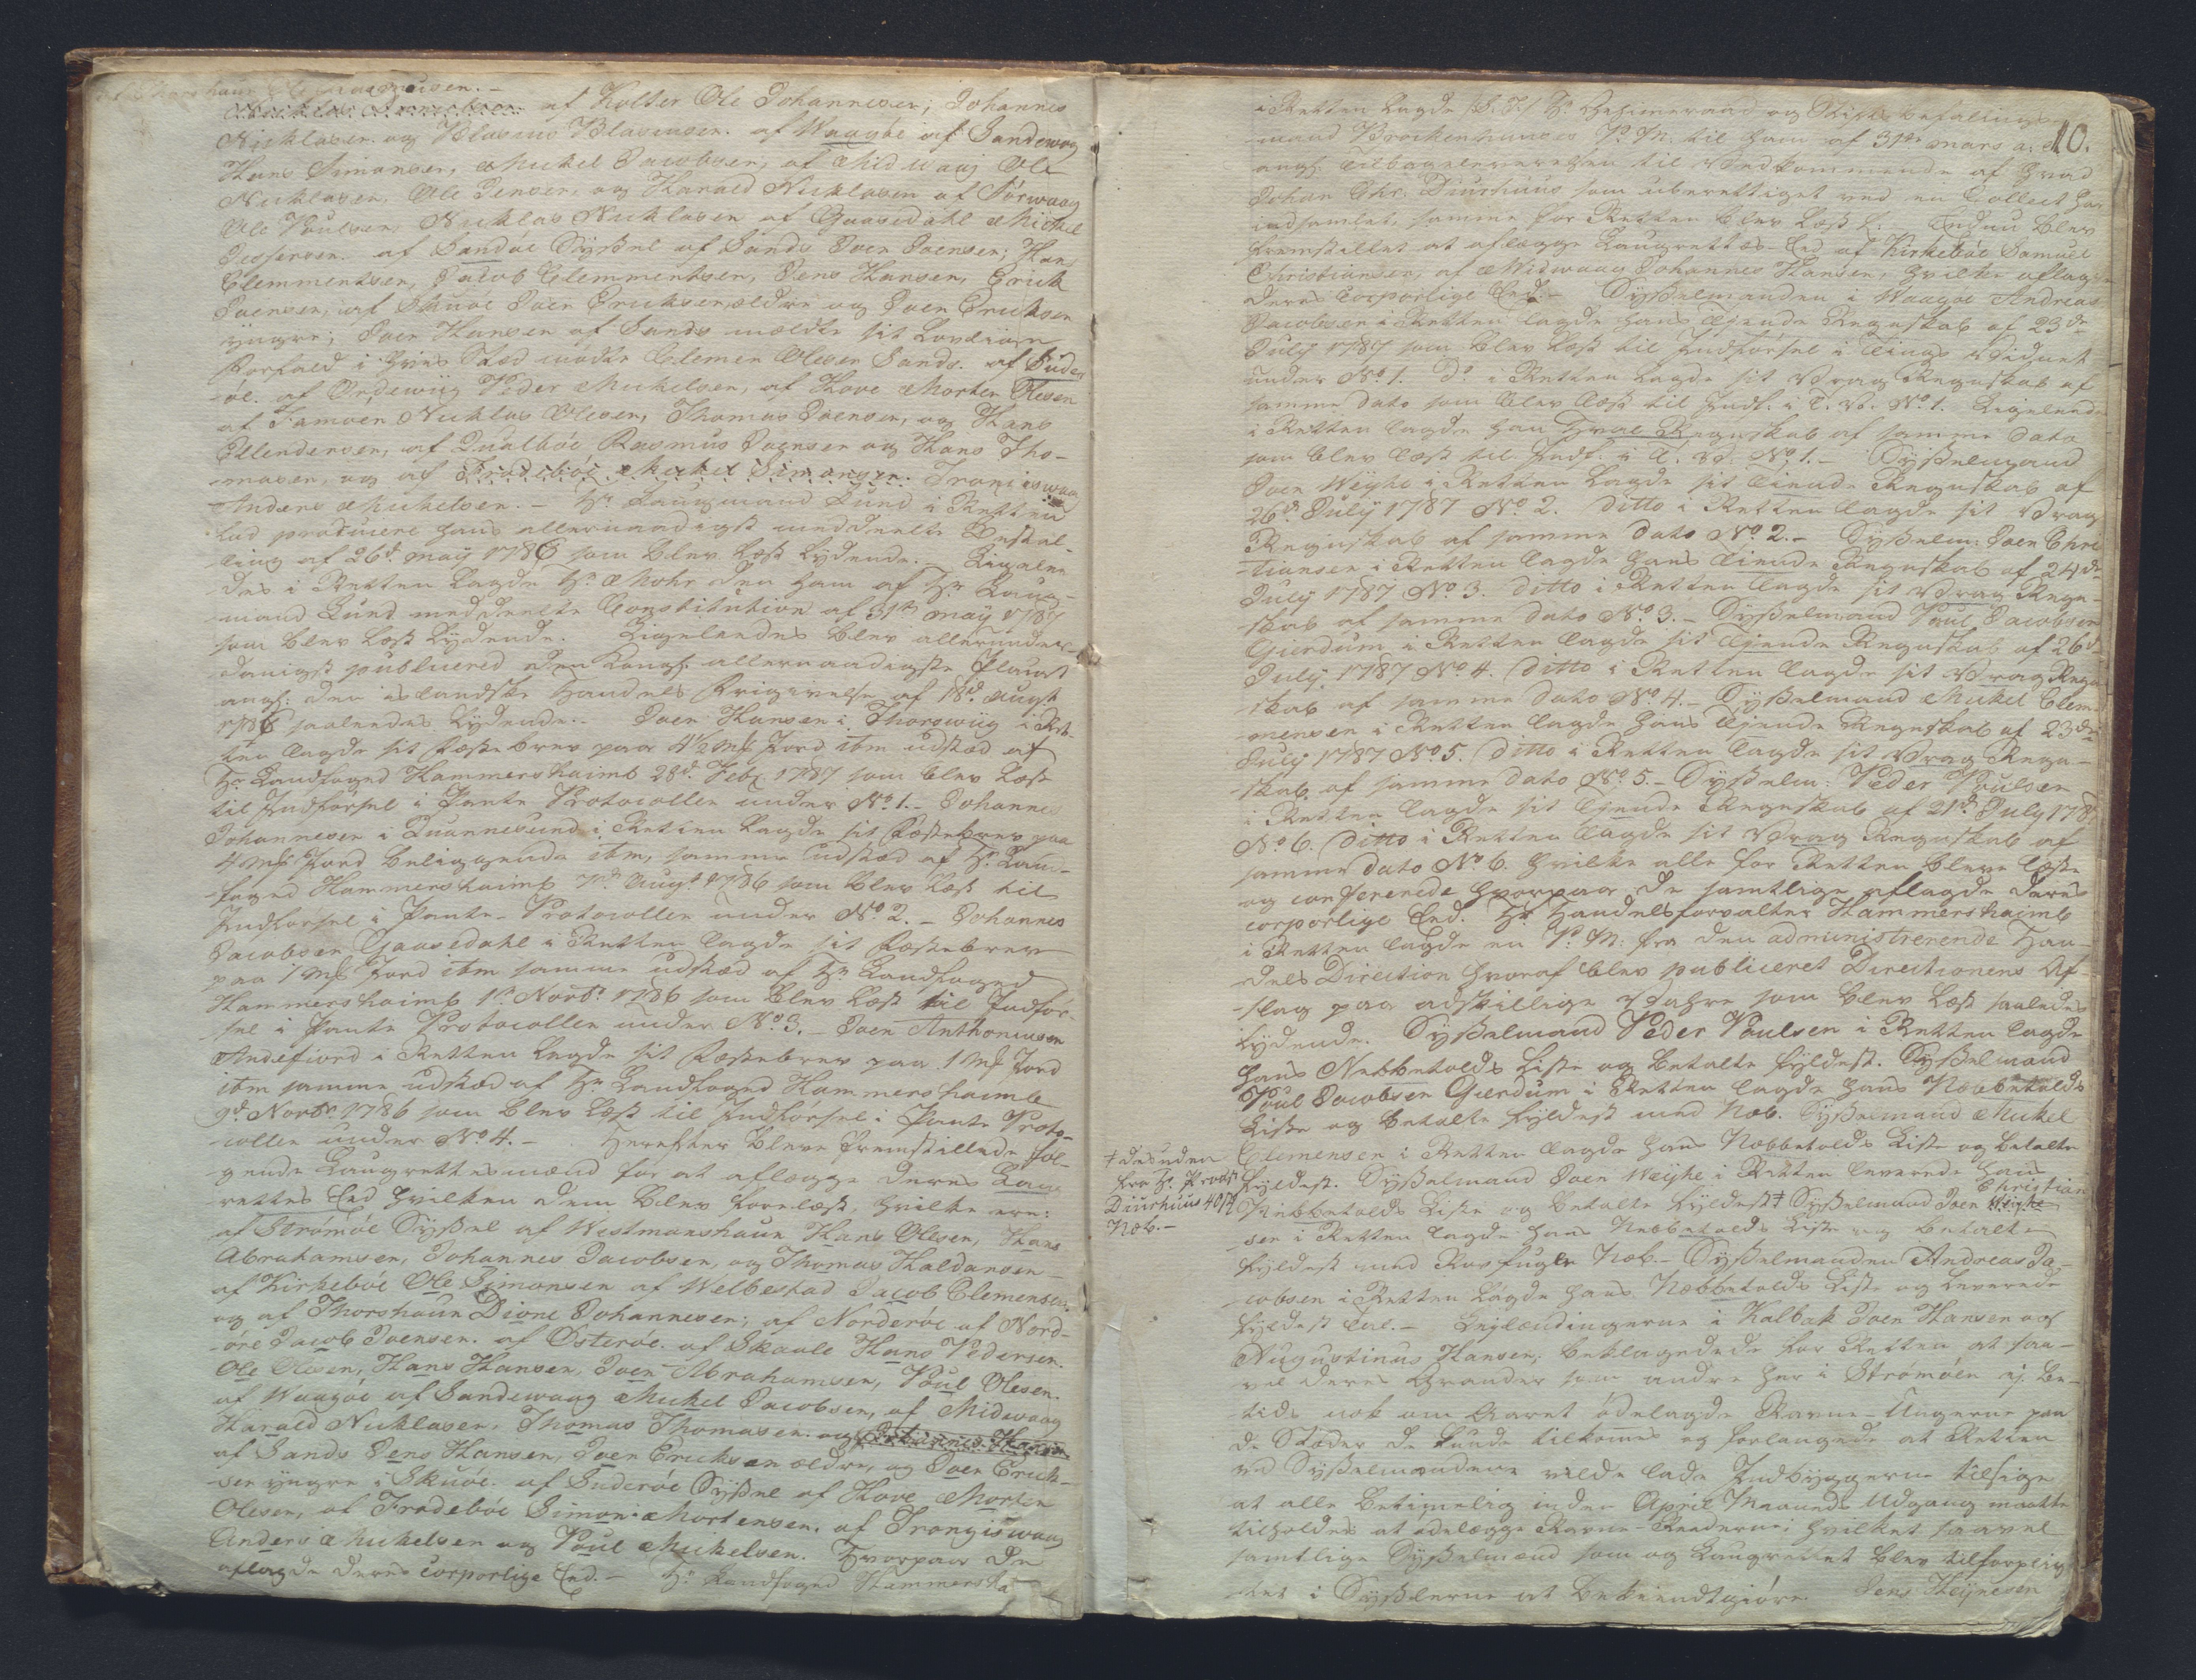 af Kolter Ole Johannesen, Johannes
Nicklasen og Blasius Blasiusen. af Waagöe af Sandewog
Hans Simonsen, Mickel Jacobsen, af Midwaag Ole
Nicklasen, Ole Jensen, og Harald Nicklasen af Sörwaag
Ole Poulsen, Nicklas Nicklasen af Gaasedahl Mickel
Jespersen. af Sandöe Syßel af Sands Joen Joensen, Hans
Clemmentsen, Jacob Clemmentsen, Jens Hansen, Erick
Joensen, af Skuöe Joen Ericksen ældre og Joen Ericksen
yngre; Joen Hansen af Sands meldte sit Lovlige
Forfald i hvis Sted mödte Clemen Olesen Sands. af Suder-
öe. af Ordewiig Peder Mickelsen, af Howe Morten Olesen
af Famoen Nicklas Olesen, Thomas Joensen, og Hans
Ellendersen, af Qualböe Rasmus Joensen og Hans Tho-
masen, og af Frodeböe Mickel Simonsen. Trongiswaag
Anders Mickelsen. – Hr. Laugmand Lund i Retten
lod producere hans allernaadigst meddeelte Bestal-
ling af 26d. May 1786 som blev læst lydende. – Ligele-
des i Retten lagde Hr. Mohr den ham af Hr. Laug-
mand Lund meddeelte Constitution af 31te May 1787
som blev læst lydende. Ligeledes blev allerunder-
danigst publicered den Kongl. allernaadigste Placat
angl. den islandske Handels Frigivelse af 18d. Augt.
1786 saaledes lydende. – Joen Hansen i Thorswiig i Ret-
ten lagde sit Fæstebrev paa 4½ Mk Jord ibm udstæd af
Hr. Landfoged Hammershaimb 28d. Febr. 1787 som blev læst
til Indförsel i Pante Protocollen under No. 1. – Johannes
Johannesen i Quannesund i Retten lagde sit Fæstebrev paa
4 Mk Jord beliggende ibm, samme udstæd af Hr. Land-
foged Hammershaimb 7d. Augt. 1786 som blev læst til
Indförsel i Pante-Protocollen under No. 2. – Johannes
Jacobsen Gaasedahl i Retten lagde sit Fæstebrev
paa 1 Mk Jord ibm samme udstæd af Hr. Landfoged
Hammershaimb 1t. Novbr. 1786 som blev læst til Indför-
sel i Pante Protocollen under No. 3. – Joen Anthoniusen
Andefiord i Retten lagde sit Fæstebrev paa 1 Mk Jord
ibm samme udstæd af Hr. Landfoged Hammershaimb
9d. Novbr. 1786 som blev læst til Indförsel i Pante Proto-
collen under No 4. – Herefter bleve fremstillede föl-
gende Laugrettesmænd for at aflægge deres Laug-
rettes Eed hvilken dem blev forelæst, hvilke ere:
af Strömöe Syßel af Westmanshaun Hans Olesen, Hans
Abrahamsen, Johannes Jacobsen, og Thomas Haldansen
af Kirkeböe Ole Simonsen af Welbestad Jacob Clemensen
og af Thorshaun Dione Johannesen; af Norderöe af Nord-
öre Jacob Joensen. af Österöe. af Skaale Hans Pedersen.
Ole Olesen, Hans Hansen, Joen Abrahamsen, Poul Olesen.
af Waagöe af Sandewaag Mickel Jacobsen, af Midwaag
Harald Nicklasen, Thomas Thomasen. og Johannes Hansen
af Sands Jens Hansen, Joen Ericksen ældre, og Joen Erick-
sen yngre i Skuöe. af Suderöe Syßel af Hove Morten
Olesen, af Frodeböe Simon Mortensen. af Trongiswaag
Anders Mickelsen og Poul Mickelsen. Hvorpaa de
aflagde deres corporlige Eed. – Hr. Landfoged Hammersha
10.
i Retten lagde S. T. Hr. Geheimeraad og Stiftsbefalings-
mand Brockenhuuses P. M. til ham af 31te Mars a. c.
angl. Tilbageleverelsen til Vedkommende af hvad
Johan Chr. Diurhuus som uberettiget ved en Collect har
indsamlet, samme for Retten blev læst. Endnu blev
fremstillet at aflægge Laugrettes-Eed af Kirkeböe Samuel
Christiansen, af Midwaag Johannes Hansen, hvilke aflagde
deres corporlige Eed. – Syßelmanden i Waagöe Andreas
Jacobsen i Retten lagde hans Tiende Regnskab af 23de
July 1787 som blev læst til Indförsel i Tings Vidnet
under No 1. Do. i Retten lagde sit Vrag Regnskab af
samme dato som blev læst til Indf. i T. V. No. 1. Ligeledes
i Retten lagde han Hval Regnskab af samme Dato
som blev læst til Indf. i T. V. No. 1. – Syßelmand
Joen Weyhe i Retten lagde sit Tiende Regnskab af
26d. July 1787 No. 2. Ditto i Retten lagde sit Vrag
Regnskab af samme Dato No. 2. – Syßelm: Joen Chri-
stiansen i Retten lagde hans Tiende Regnskab af 24de
July 1787 No. 3. Ditto i Retten lagde sit Vrag Regn-
skab af samme Dato No. 3. – Syßelmand Poul Jacobsen
Gierdum i Retten lagde sit Tiende Regnskab af 26d
July 1787 No. 4. Ditto i Retten lagde sit Vrag Regn-
skab af samme Dato No. 4. – Syßelmand Mickel Clem-
mensen i Retten lagde hans Tiende Regnskab af 23de
July 1787 No. 5. Ditto i Retten lagde sit Vrag Regn-
skab af samme Dato No. 5. – Syßelm: Peder Poulsen
i Retten lagde sit Tiende Regnskab af 21d. July 1787
No. 6. Ditto i Retten lagde sit Vrag Regnskab af
samme Dato No. 6. hvilke alle for Retten bleve læste
og confererede hvorpaa de samtlige aflagde deres
corporlige Eed. Hr. Handelsforvalter Hammershaimb
i Retten lagde en P. M. fra den administrerende Han-
dels Direction hvoraf blev publiceret Directionens Af-
slag paa adskillige Vahre som blev læst saaledes
lydende. Syßelmand Peder Poulsen i Retten lagde
hans Nebbetolds Liste og betalte fyldest. Syßelmand
Poul Jacobsen Gierdum i Retten lagde hans Næbbetolds
Liste og betalte fyldest med Næb. Syßelmand Mickel
Clemensen i Retten lagde hans Næbbetolds Liste og betalte
fyldest. Syßelmand Joen Weyhe i Retten leverede hans
Nebbetolds Liste og betalte fyldest ‡ Syßelmand Joen Weyhe Christian
‡ desuden
fra Hr. Provst
Diurhuus 40
Næb. –
sen i Retten lagde hans Nebbetolds Liste og betalte
fyldest med Rovfugle Næb. – Syßelmanden Andreas Ja-
cobsen i Retten lagde hans Næbbetolds Liste og leverede
fyldest. – i Kalbak Joen Hansen og
Augustinus Hansen, beklagede for Retten at saa-
vel deres Grander som andre her i Strömöen ej be-
tids nok om Aaret ödelagde Ravne-Ungerne paa
de Stæder de kunde tilkomes og forlangede at Retten
ved Syßelmændene vilde lade Indbyggerne tilsige
at alle betimelig inden April Maaneds Udgang maatte
tilholdes at ödelegge Ravne-Rederne; hvilket saavel
samtlige Syßelmænd som og Laugrettet blev tilforplig-
tet i Syßlerne at bekiendtgiöre. Jens Heynesen